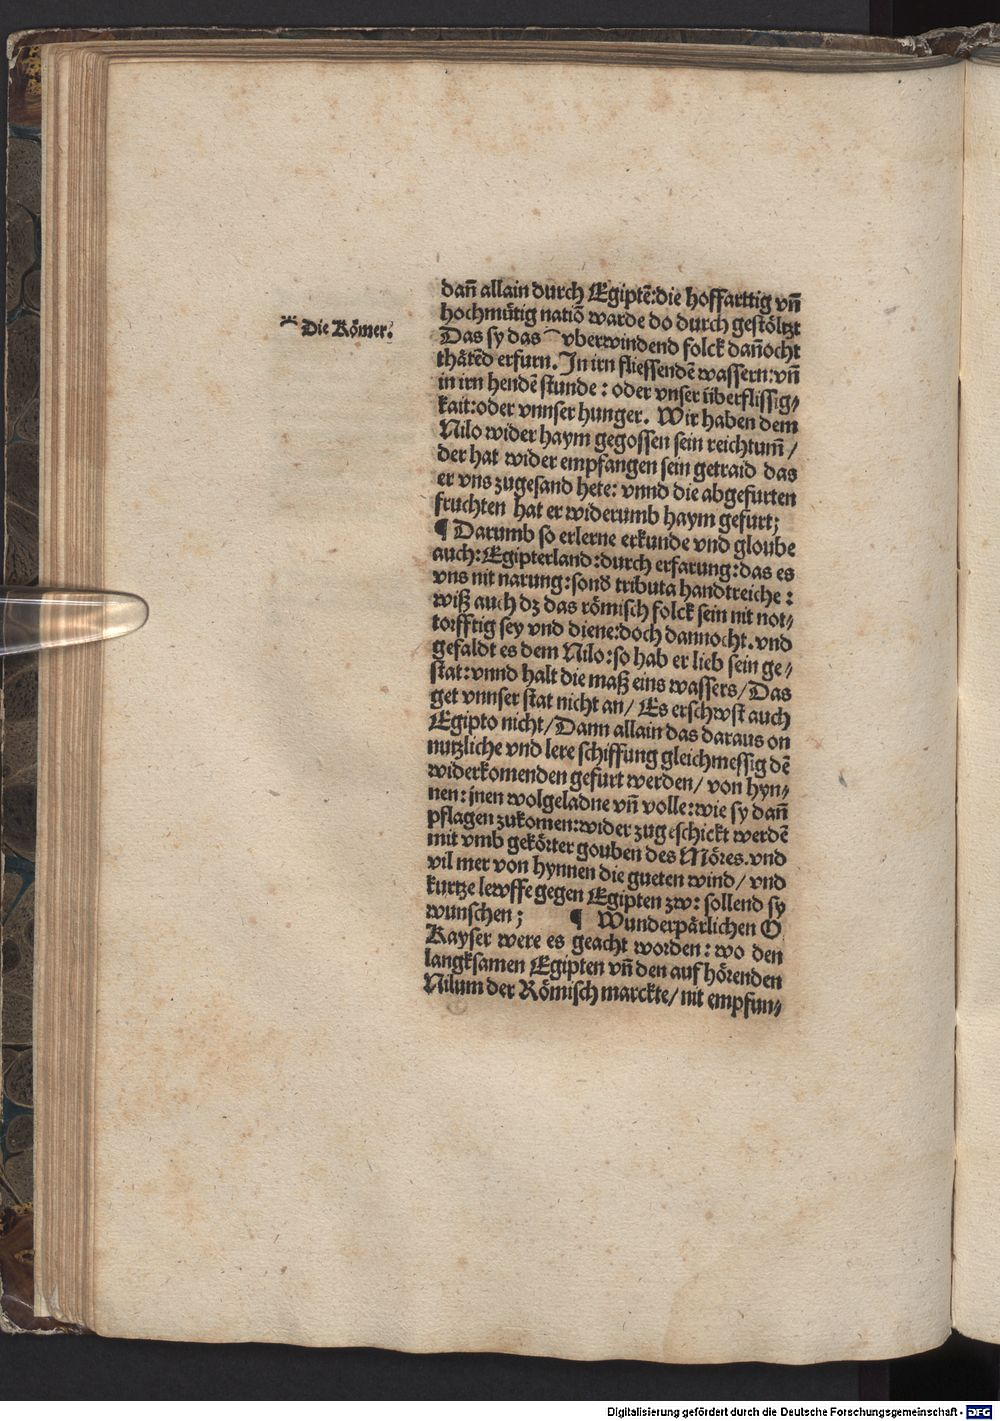 Die Römer.
dañ allain durch Egiptē:die hoffarttig vñ
hochmůtig natiõ warde do durch gestöltzt
Das sy das vberwindend folck dañocht
thätēd erfurn. In irn fliessendē wassern:vñ
in irn hendē stunde : oder vnser überflissig⸗
kait:oder vnnser hunger. Wir haben dem
Nilo wider haym gegossen sein reichtum̃ /
der hat wider empfangen sein getraid das
er vns zugesand hete: vnnd die abgefurten
fruchten hat er widerumb haym gefurt;
¶ Darumb so erlerne erkunde vnd gloube
auch: Egipterland :durch erfarung: das es
vns nit narung: sonđ tributa handtreiche :
wiß auch dz das römisch folck sein nit not⸗
torfftig sey vnd diene:doch dannocht. vnd
gefaldt es dem Nilo: so hab er lieb sein ge⸗
stat: vnnd halt die maß eins wassers/ Das
get vnnser stat nicht an/ Es erschwst auch
Egipto nicht/ Dann allain das daraus on
nutzliche vnd lere schiffung gleichmessig dē
widerkomenden gefurt werden/ von hyn⸗
nen: jnen wolgeladne vñ volle: wie sy dañ
pflagen zukomen:wider zugeschickt werdē
mit vmb gekörter gouben des Möres. vnd
vil mer von hynnen die gueten wind/ vnd
kurtze lewffe gegen Egipten zw: sollend sy
wunschen; ¶ Wunderpärlichen O
Kayser were es geacht worden: wo den
langksamen Egipten vñ den auf hörenden
Nilum der Römisch marckte/ nit empfun⸗
Digitalisierung gefördert durch die Deutsche Forschungsgemeinschaft - DFG